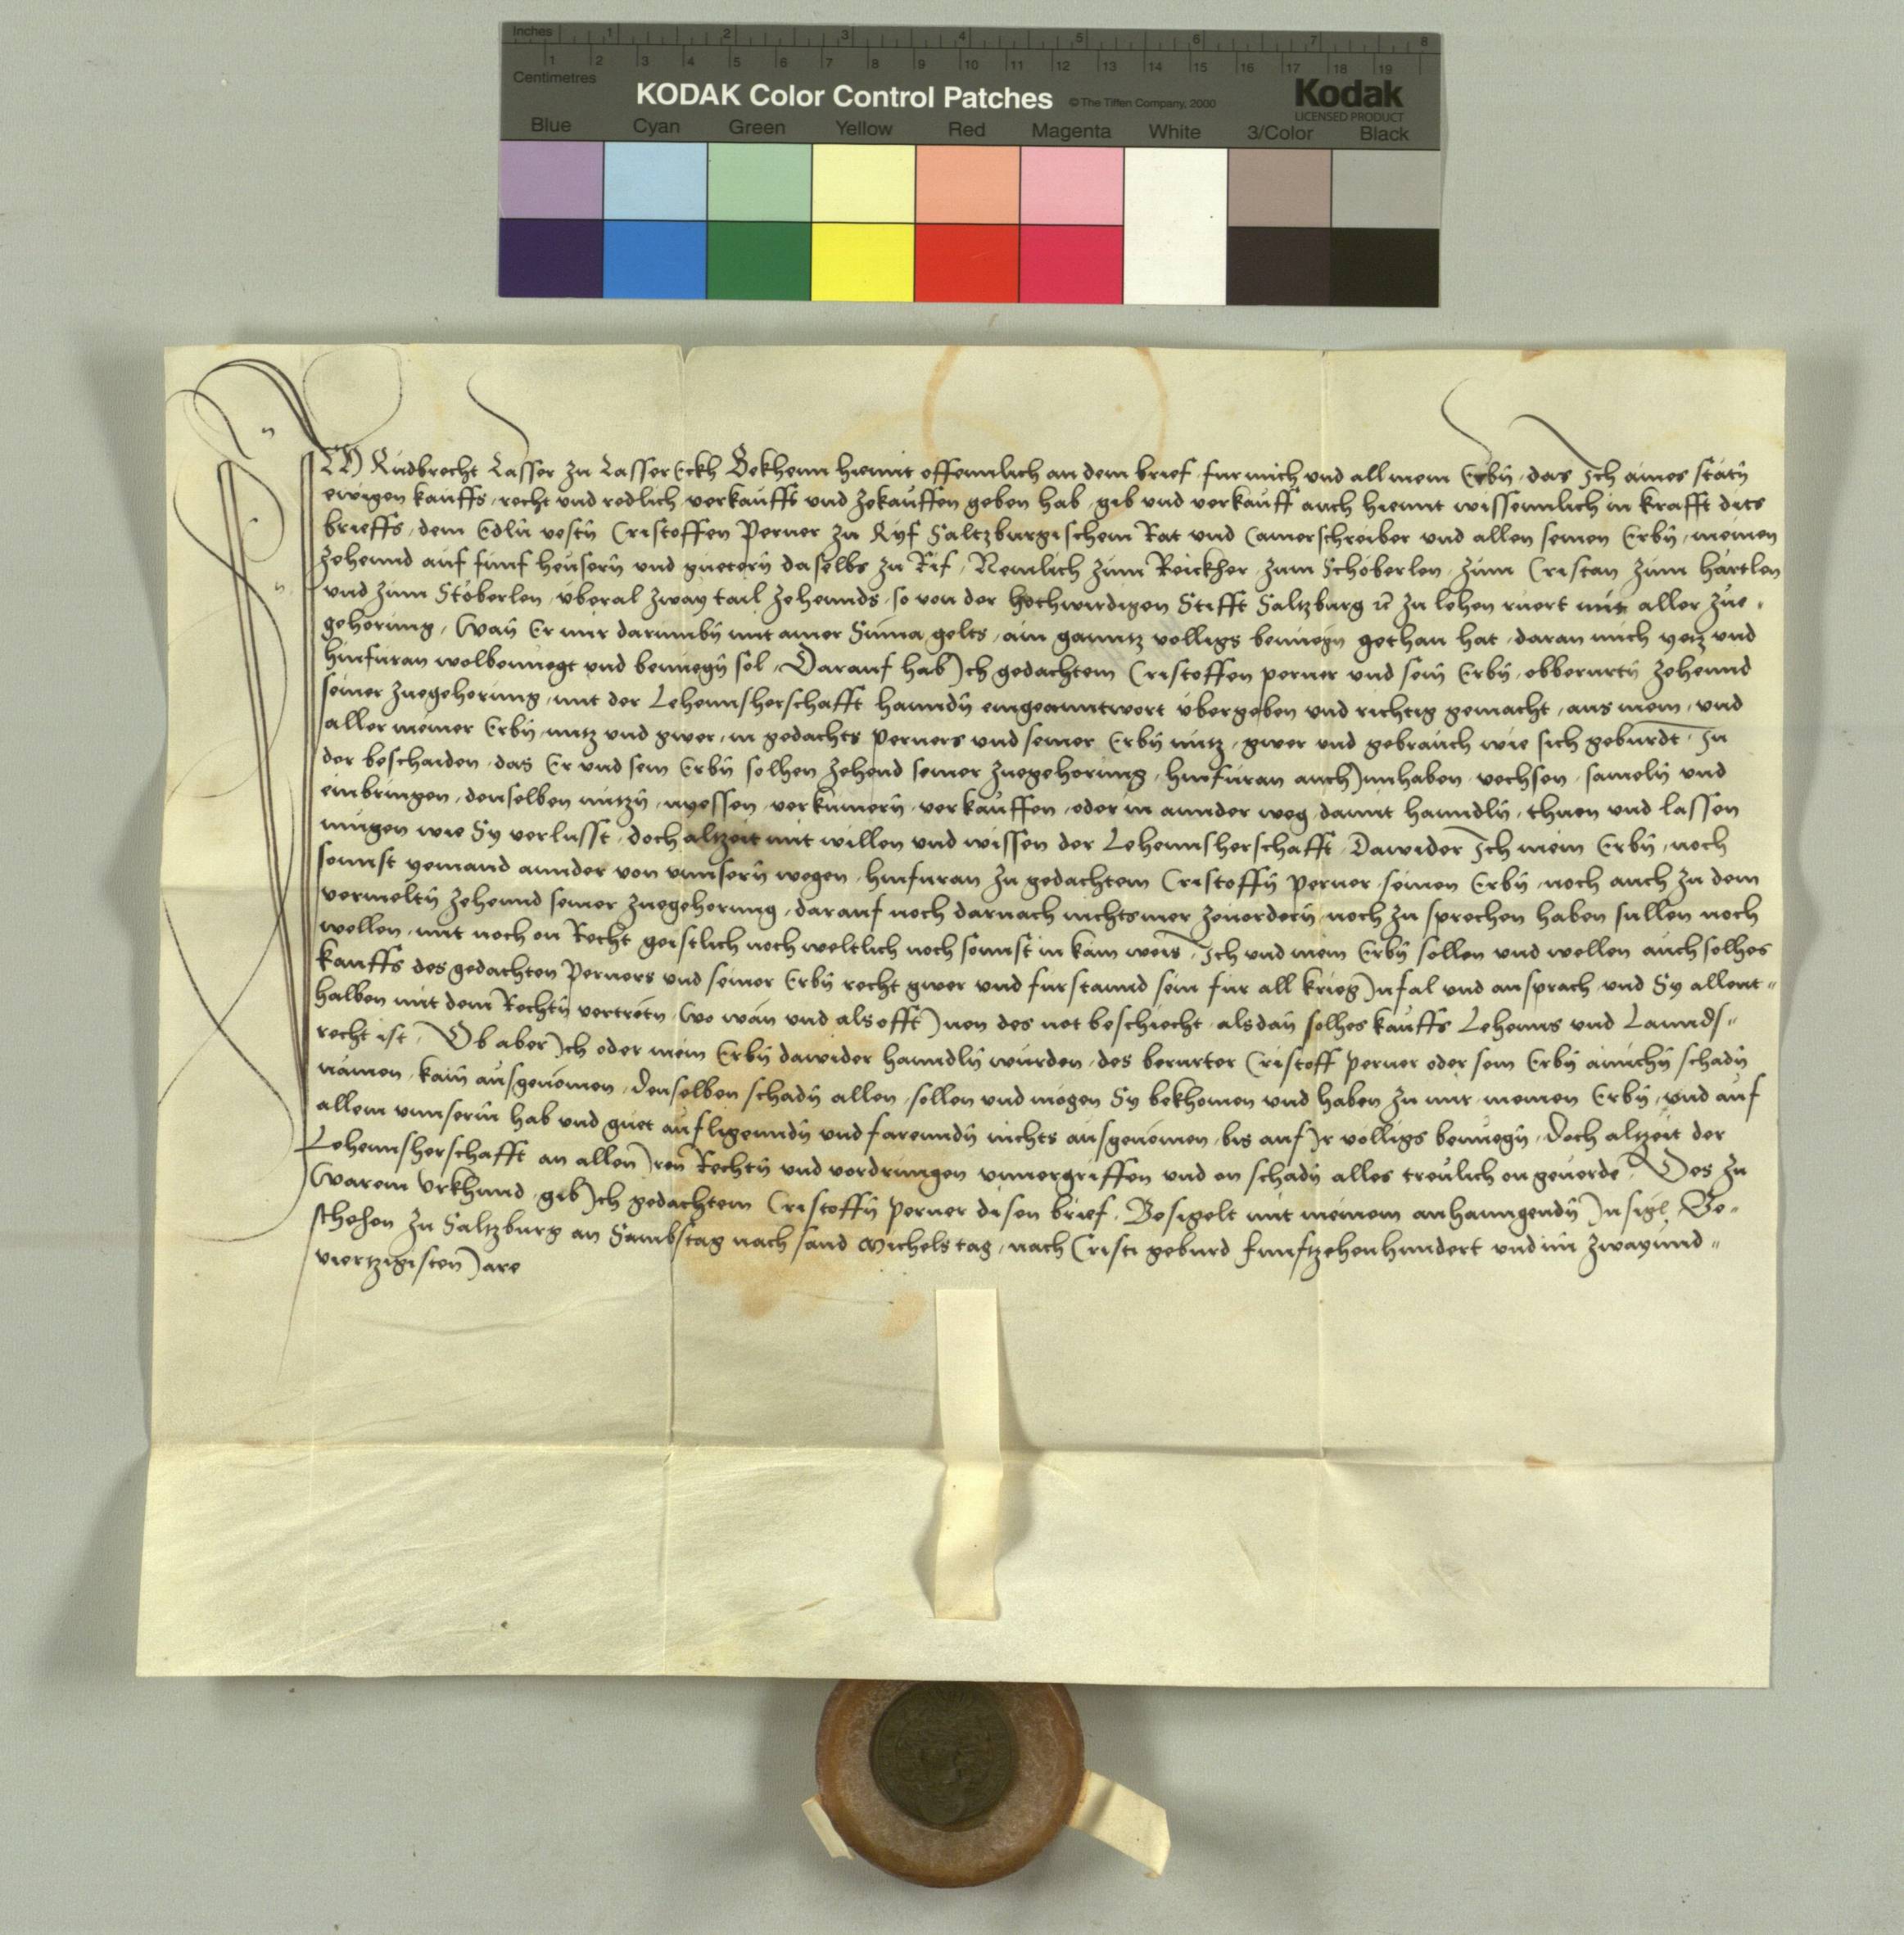 Inches 1 2 3 4 5 6 7 8
Centimetres 1 2 3 4 5 6 7 8 9 10 11 12 13 14 15 16 17 18 19
KODAK Color Control Patches © The Tiffen Company, 2000 Kodak
LICENSED PRODUCT
Blue Cyan Green Yellow Red Magenta White 3/Color Black
ICH Rudbrecht Lasser zu LasserEckh Bekhenn hiemit offennlich an dem brief fur mich und all mein Erbn̄, das Ich aines statn̄
ewigen kauffs, recht und redlich verkaufft und zekauffen geben hab, gib und verkauff auch hiemit wissennlich in krafft dits
brieffs, dem Edln̄ vestn̄ Cristoffen Perner zu Ryf Saltzburgischem Rat und Camerschreiber und allen seinen Erbn̄, meinen
zehennd auf funf heusern̄ und guetern̄ daselbs zu Rif, Nemlich zum Reickher zum Schoberlen, zum Cristan zum Hartlen
und zum Stoberlen, uberal zway tail zehennds, so von der hochwirdigen Stifft Saltzburg zu lehen ruert mit aller zue,
gehorung, Wan̄ Er mir darumbn̄ mit ainer Suma gelts, ain ganntz volligs benuegn̄ gethan hat, daran mich yetz und
hinfuran wolbenuegt und benuegn̄ sol, Darauf hab Ich gedachtem Cristoffen perner und sein̄ Erbn̄, obberurtn̄ zehennd
seiner zuegehorung, mit der Lehennsherschafft hanndn̄ eingeanntwort ubergeben und richtig gemacht, aus mein, und
aller meiner Erbn̄ nutz und gwer, in gedachts perners und seiner Erbn̄ nutz, gwer und gebrauch wie sich geburdt, In
der beschaiden, das Er und sein Erbn̄ solhen zehend seiner zuegehorung, hinfuran auch Innhaben, vechsen, sameln̄ und
einbringen, denselben nutzn̄, nyessen, verkumern̄, verkauffen, oder in annder weg damit hanndln̄, thuen und lassen
mugen wie Sy verlusst, doch altzeit mit willen und wissen der Lehennsherschafft, Dawider Ich mein Erbn̄, noch
sonnst yemand annder von unnsern̄ wegen, hinfuran zu gedachtem Cristoffn̄ perner, seinen Erbn̄, noch auch zu dem
vermeltn̄ zehennd seiner zuegehorung, darauf noch darnach nichtsmer zevordern̄ noch zu sprechen haben sullen noch
wellen, mit noch on Recht geistlich noch weltlich noch sonnst in kain weis, Ich und mein Erbn̄ sollen und wellen auch solhes
kauffs des gedachten Perners und seiner Erbn̄ recht gwer und furstannd sein fur all krieg Infal und ansprach, und Sy allent„
halben mit dem Rechtn̄ vertretn̄, Wo wan̄ und als offt Inen des not beschiecht, alsdan̄ solhes kauffs Lehenns und Lannds„
recht ist, Ob aber Ich oder mein Erbn̄ dawider hanndln̄ wurden, des berurter Cristoff perner oder sein Erbn̄ ainichn̄ schadn̄
namen, kain̄ ausgenomen, denselben schadn̄ allen, sollen und mogen Sy bekhomen und haben zu mir meinen Erbn̄, und auf
allem unnserm̄ hab und guet auf ligenndn̄ und farenndn̄ nichts ausgenomen, bis auf Ir volligs benuegn̄, Doch altzeit der
Lehennsherschafft an allen Iren Rechtn̄ und vordrungen unvergriffen und on schadn̄ alles treulich on geuerde, Des zu
Warem Urkhund, gib Ich gedachtem Cristoffn̄ perner disen brief, Besigelt mit meinem anhanngendn̄ Insigl, Be,
schehen zu Saltzburg an Sambstag nach sand Michels tag, nach Cristi geburd funftzehenhundert und im zwayund„
viertzigisten Jare